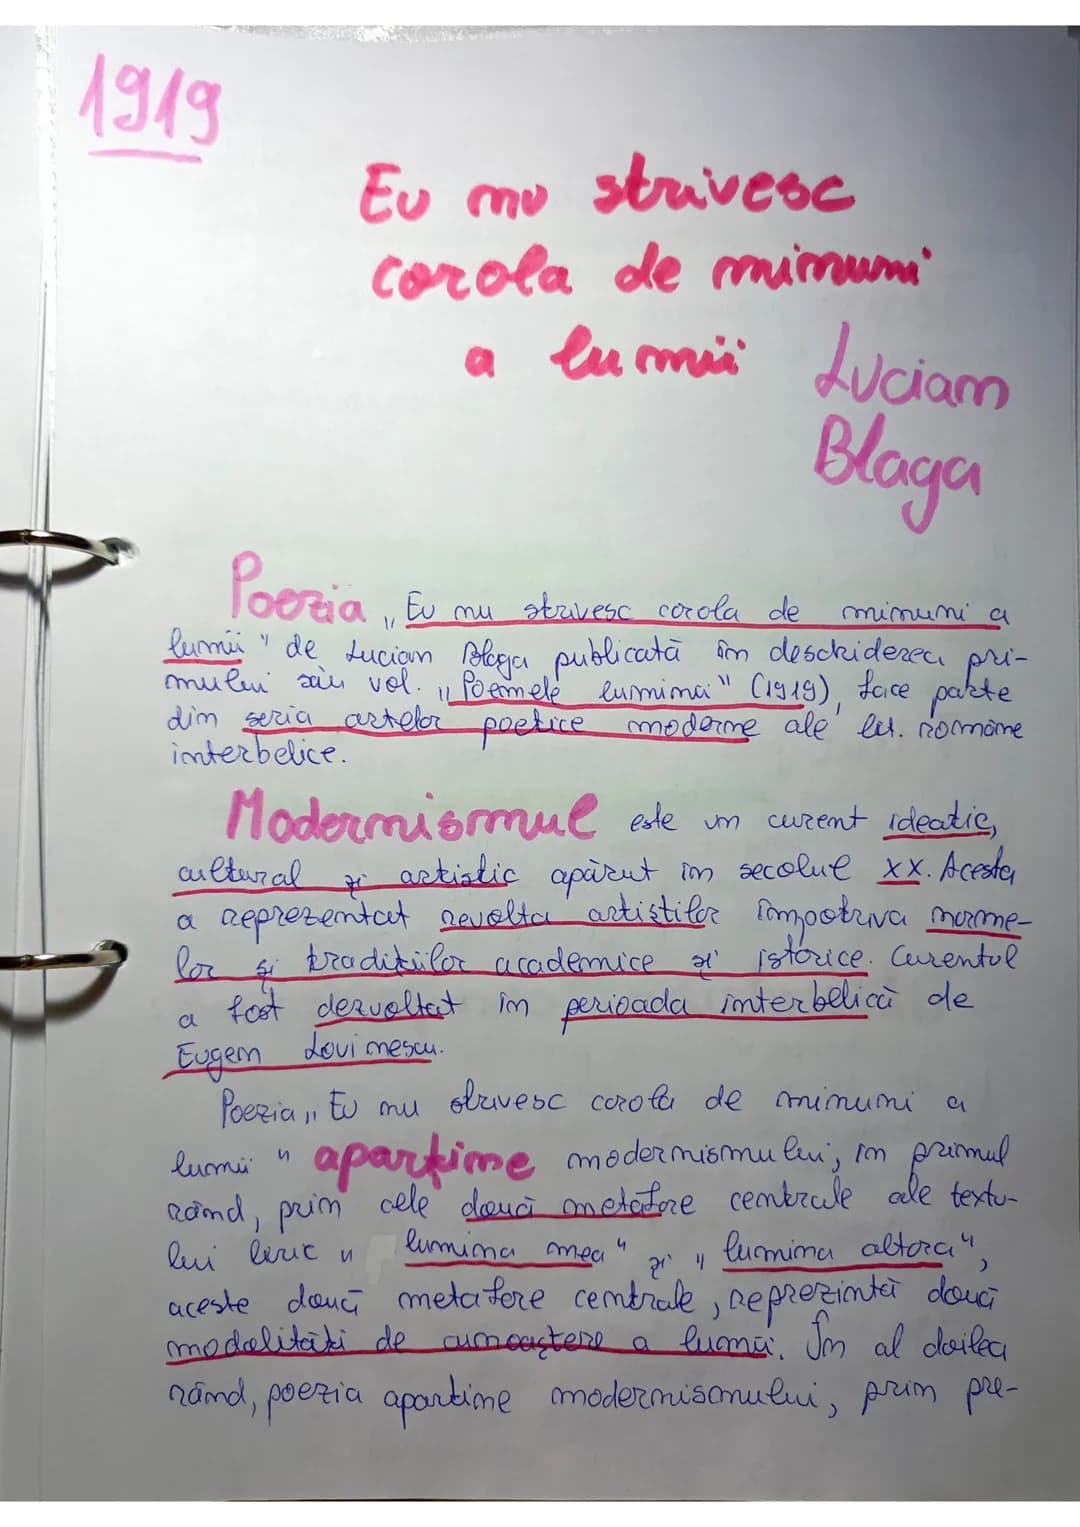 1919
Eu nu strivesc
corola de minuni
a lumii
Lucian
Blaga
Poezia „Eu nu strivesc corola de minuni a
lumii" de Lucian Blaga publicată în deschiderea pri-
mului său vol. „Poemele luminii" (1919), face parte
din seria artelor poetice moderne ale lit. române
interbelice.
Modernismul este un curent ideatic,
cultural și artistic apărut în secolul XX. Acesta
a reprezentat revolta artiștilor împotriva norme-
lor și tradițiilor academice și istorice. Curentul
a fost dezvoltat în perioada interbelică de
Eugen Lovinescu.
Poezia „Eu nu strivesc corola de minuni a
lumii" aparține modernismului, în primul
rând, prin cele două metafore centrale ale textu-
lui liric „lumina mea" și „lumina altora",
aceste două metafore centrale, reprezintă două
modalități de cunoaștere a lumii. În al doilea
rând, poezia aparține modernismului, prin pre-